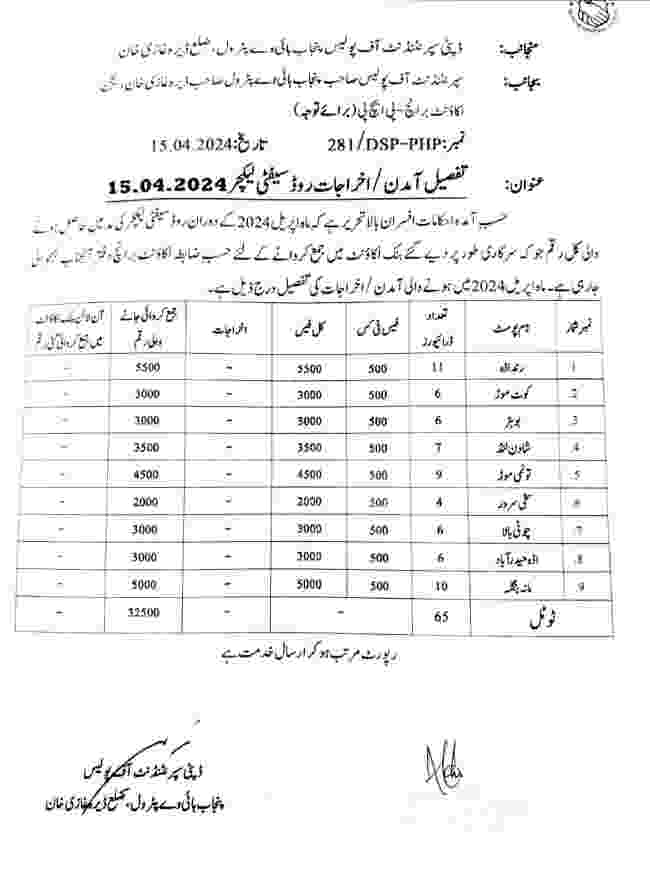 منجانب: ڈپٹی سپرنٹنڈنٹ آف پولیس پنجاب ہائی وے پٹرول، ضلع ڈیرہ غازی خان
بجانب: سپرنٹنڈنٹ آف پولیس صاحب پنجاب ہائی وے پٹرول صاحب ڈیرہ غازی خان، ریجن
اکاؤنٹ برانچ-پی ایچ پی (برائے توجہ)
نمبر: 281/DSP-PHP تاریخ: 15.04.2024
عنوان: تفصیل آمدن / اخراجات روڈ سیفٹی لیکچر 15.04.2024
حسب آمدہ احکامات افسران بالا تحریر ہے کہ ماہ اپریل 2024 کے دوران روڈ سیفٹی لیکچر کی مد میں حاصل ہونے
والی کل رقم جو کہ سرکاری طور پر دیے گئے بنک اکاؤنٹ میں جمع کروانے کے لئے حسب ضابطہ اکاؤنٹ برانچ دفتر آنجناب بھجوائی
جارہی ہے۔ ماہ اپریل 2024 میں ہونے والی آمدن / اخراجات کی تفصیل درج ذیل ہے۔
نمبر شمار نام پوسٹ تعداد ڈرائیورز فیس فی کس کل فیس اخراجات جمع کروائی جانے والی رقم آن لائن بنک اکاؤنٹ میں جمع کروائی گئی رقم
1. رندااڈہ 11 500 5500 - 5500 -
2. کوٹ موڑ 6 500 3000 - 3000 -
3. 6 500 3000 - 3000 -
4. شادن لنڈ 7 500 3500 - 3500 -
5. موڑ 9 500 4500 - 4500 -
6. سخی سرور 4 500 2000 - 2000 -
7. چوٹی بالا 6 500 3000 - 3000 -
8. اڈہ حیدرآباد 6 500 3000 - 3000 -
9. مانہ بنگلہ 10 500 5000 - 5000 -
ٹوٹل 65 - - 32500 -
رپورٹ مرتب ہو کر ارسال خدمت ہے
ڈپٹی سپرنٹنڈنٹ آف پولیس
پنجاب ہائی وے پٹرول، ضلع ڈیرہ غازی خان